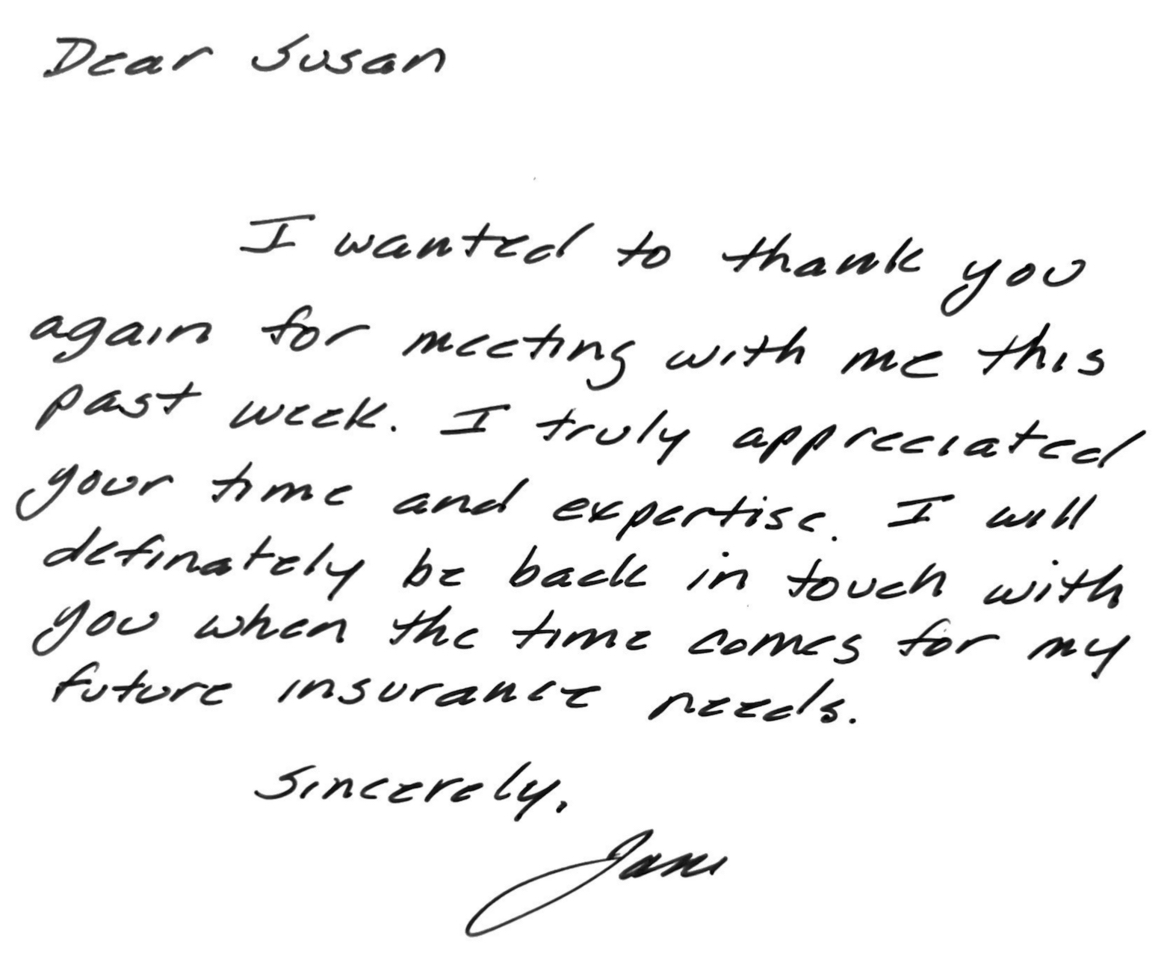 Dear Susan
I wanted to thank you
again for meeting with me this
past week. I truly appreciated
your time and expertise. I will
definately be back in touch with
you when the time comes for my
future insurance needs.
Sincerely,
Jane